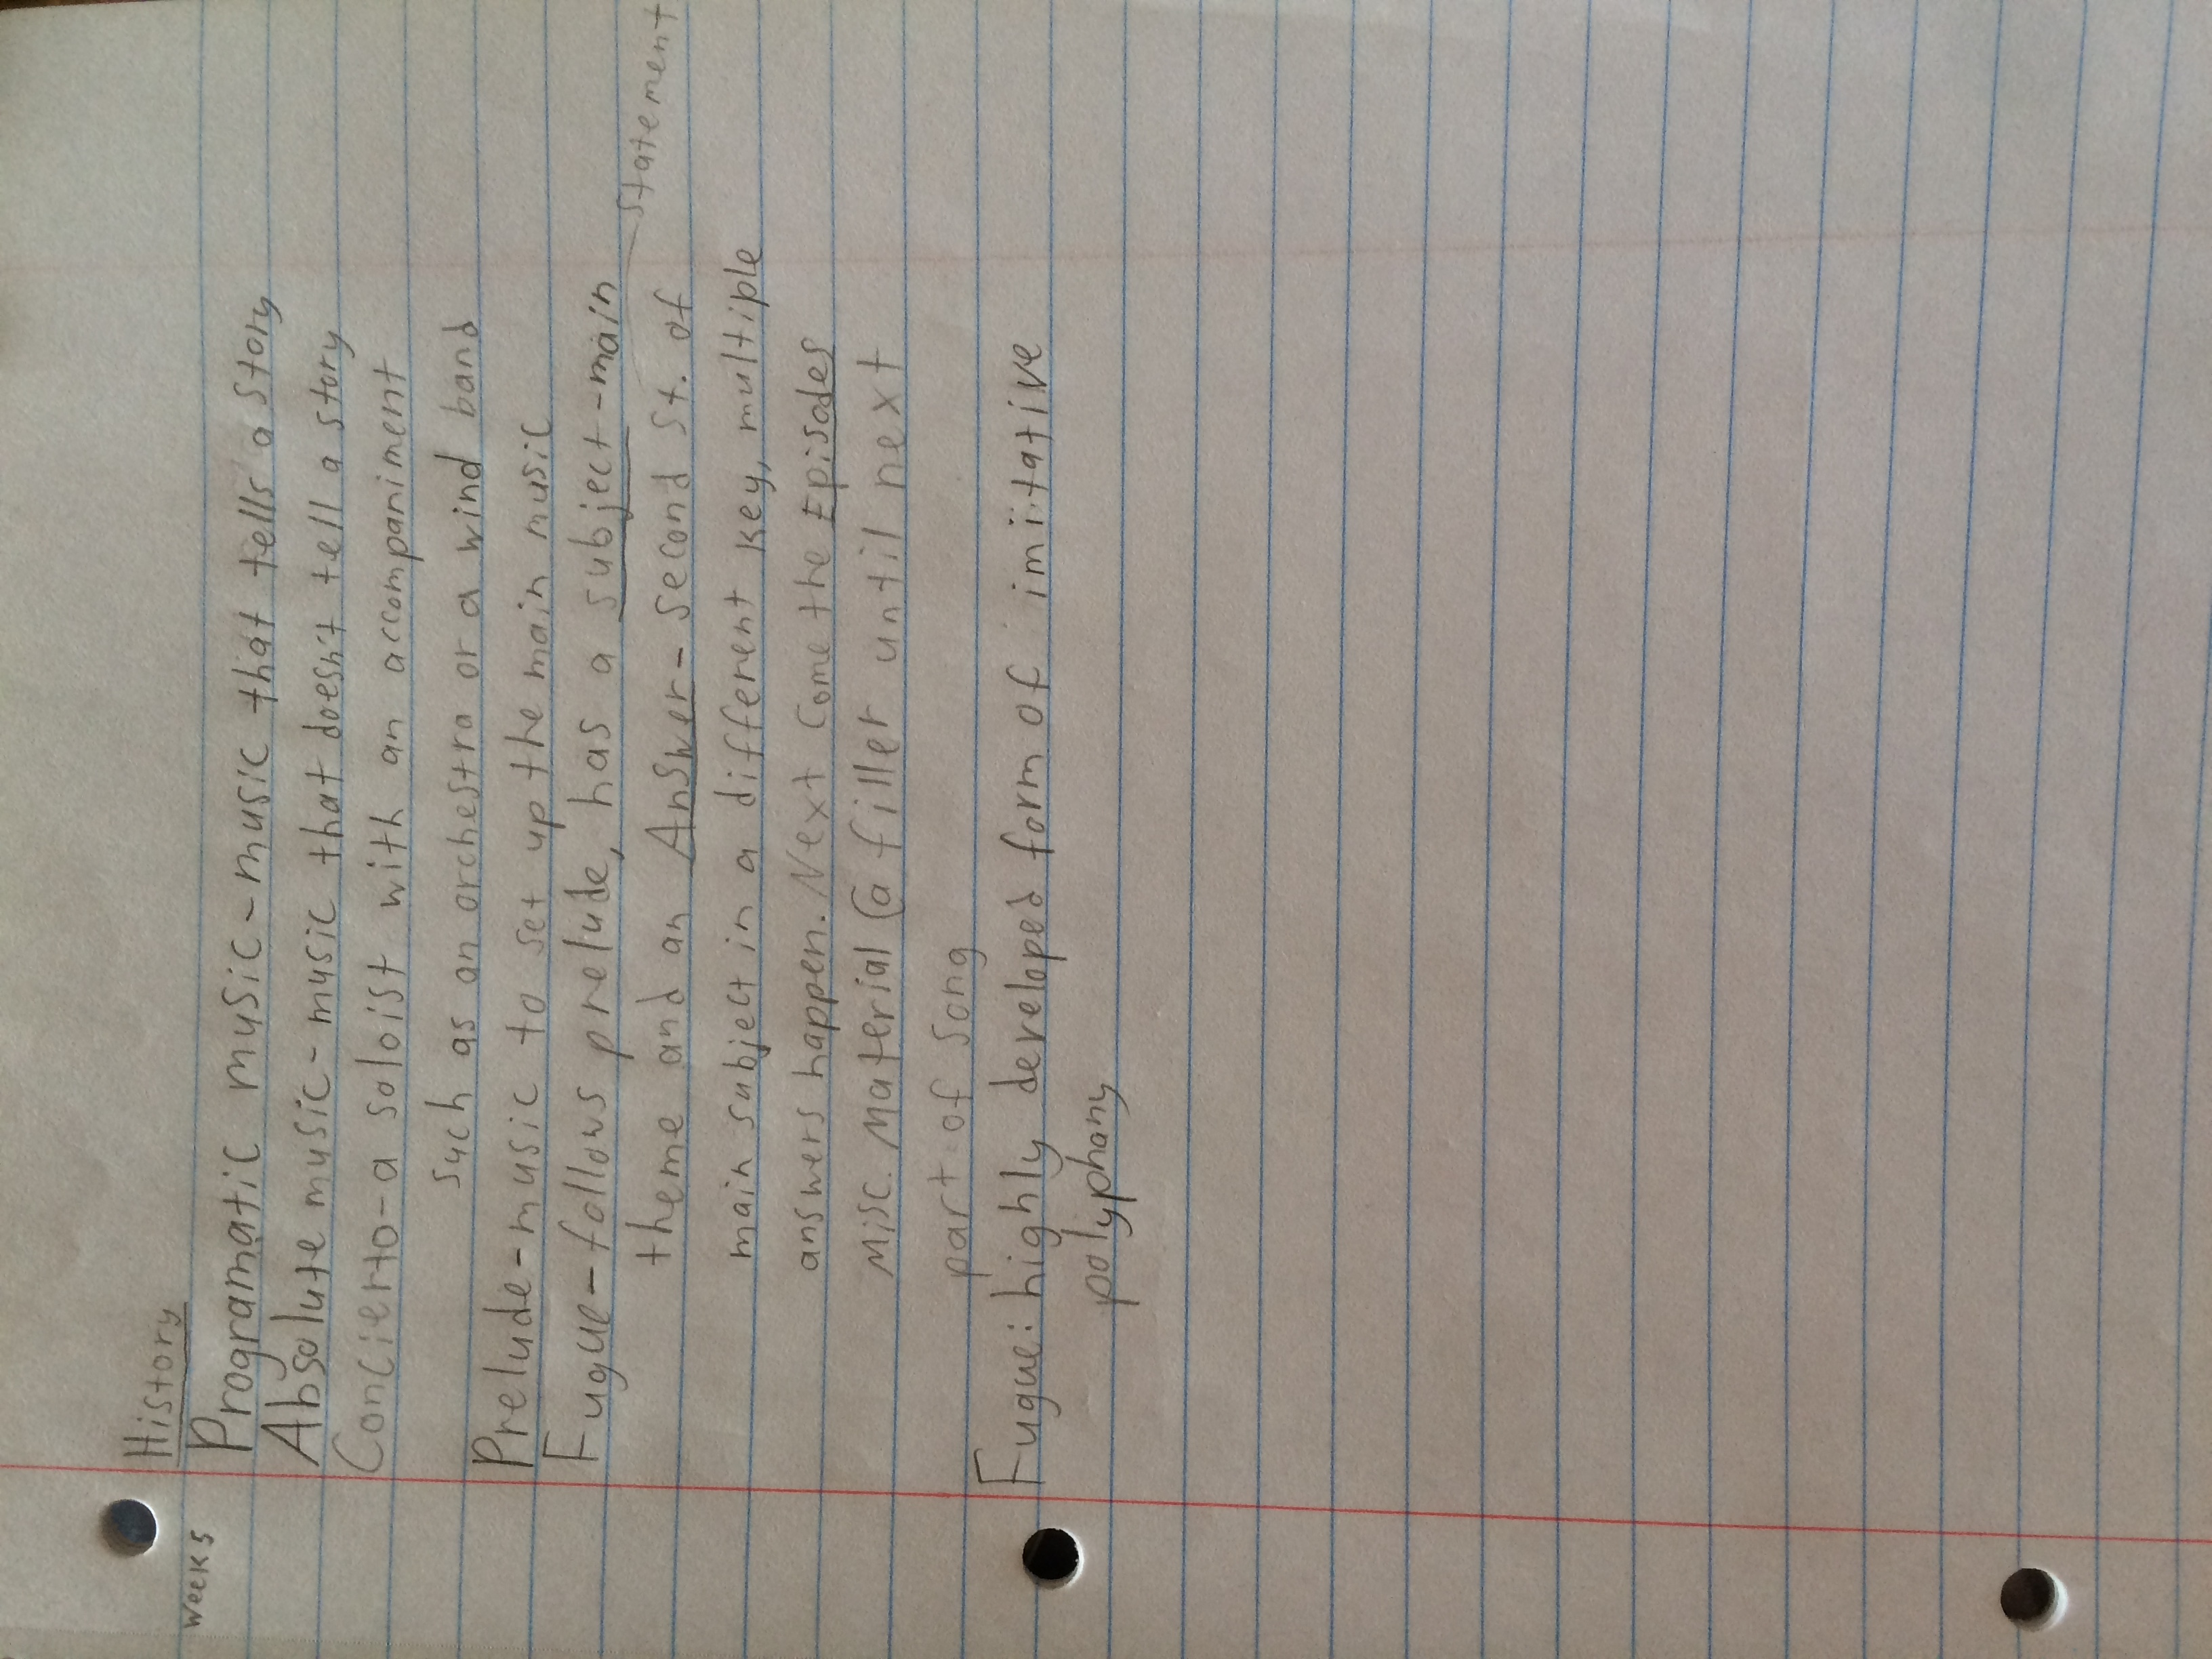 History
Weeks
Programatic music - music that tells a story
Absolute music - music that doesn't tell a story
Concierto - a soloist with an accompaniment
such as an orchestra or a wind band
Prelude - music to set up the main music
Fugue - follows prelude, has a subject - main
statement
theme and an Answer - second st. of
main subject in a different key, multiple
answers happen. Next come the Episodes
Misc. Material (a filler until next
part of song
Fugue: highly developed form of imitative
polyphany